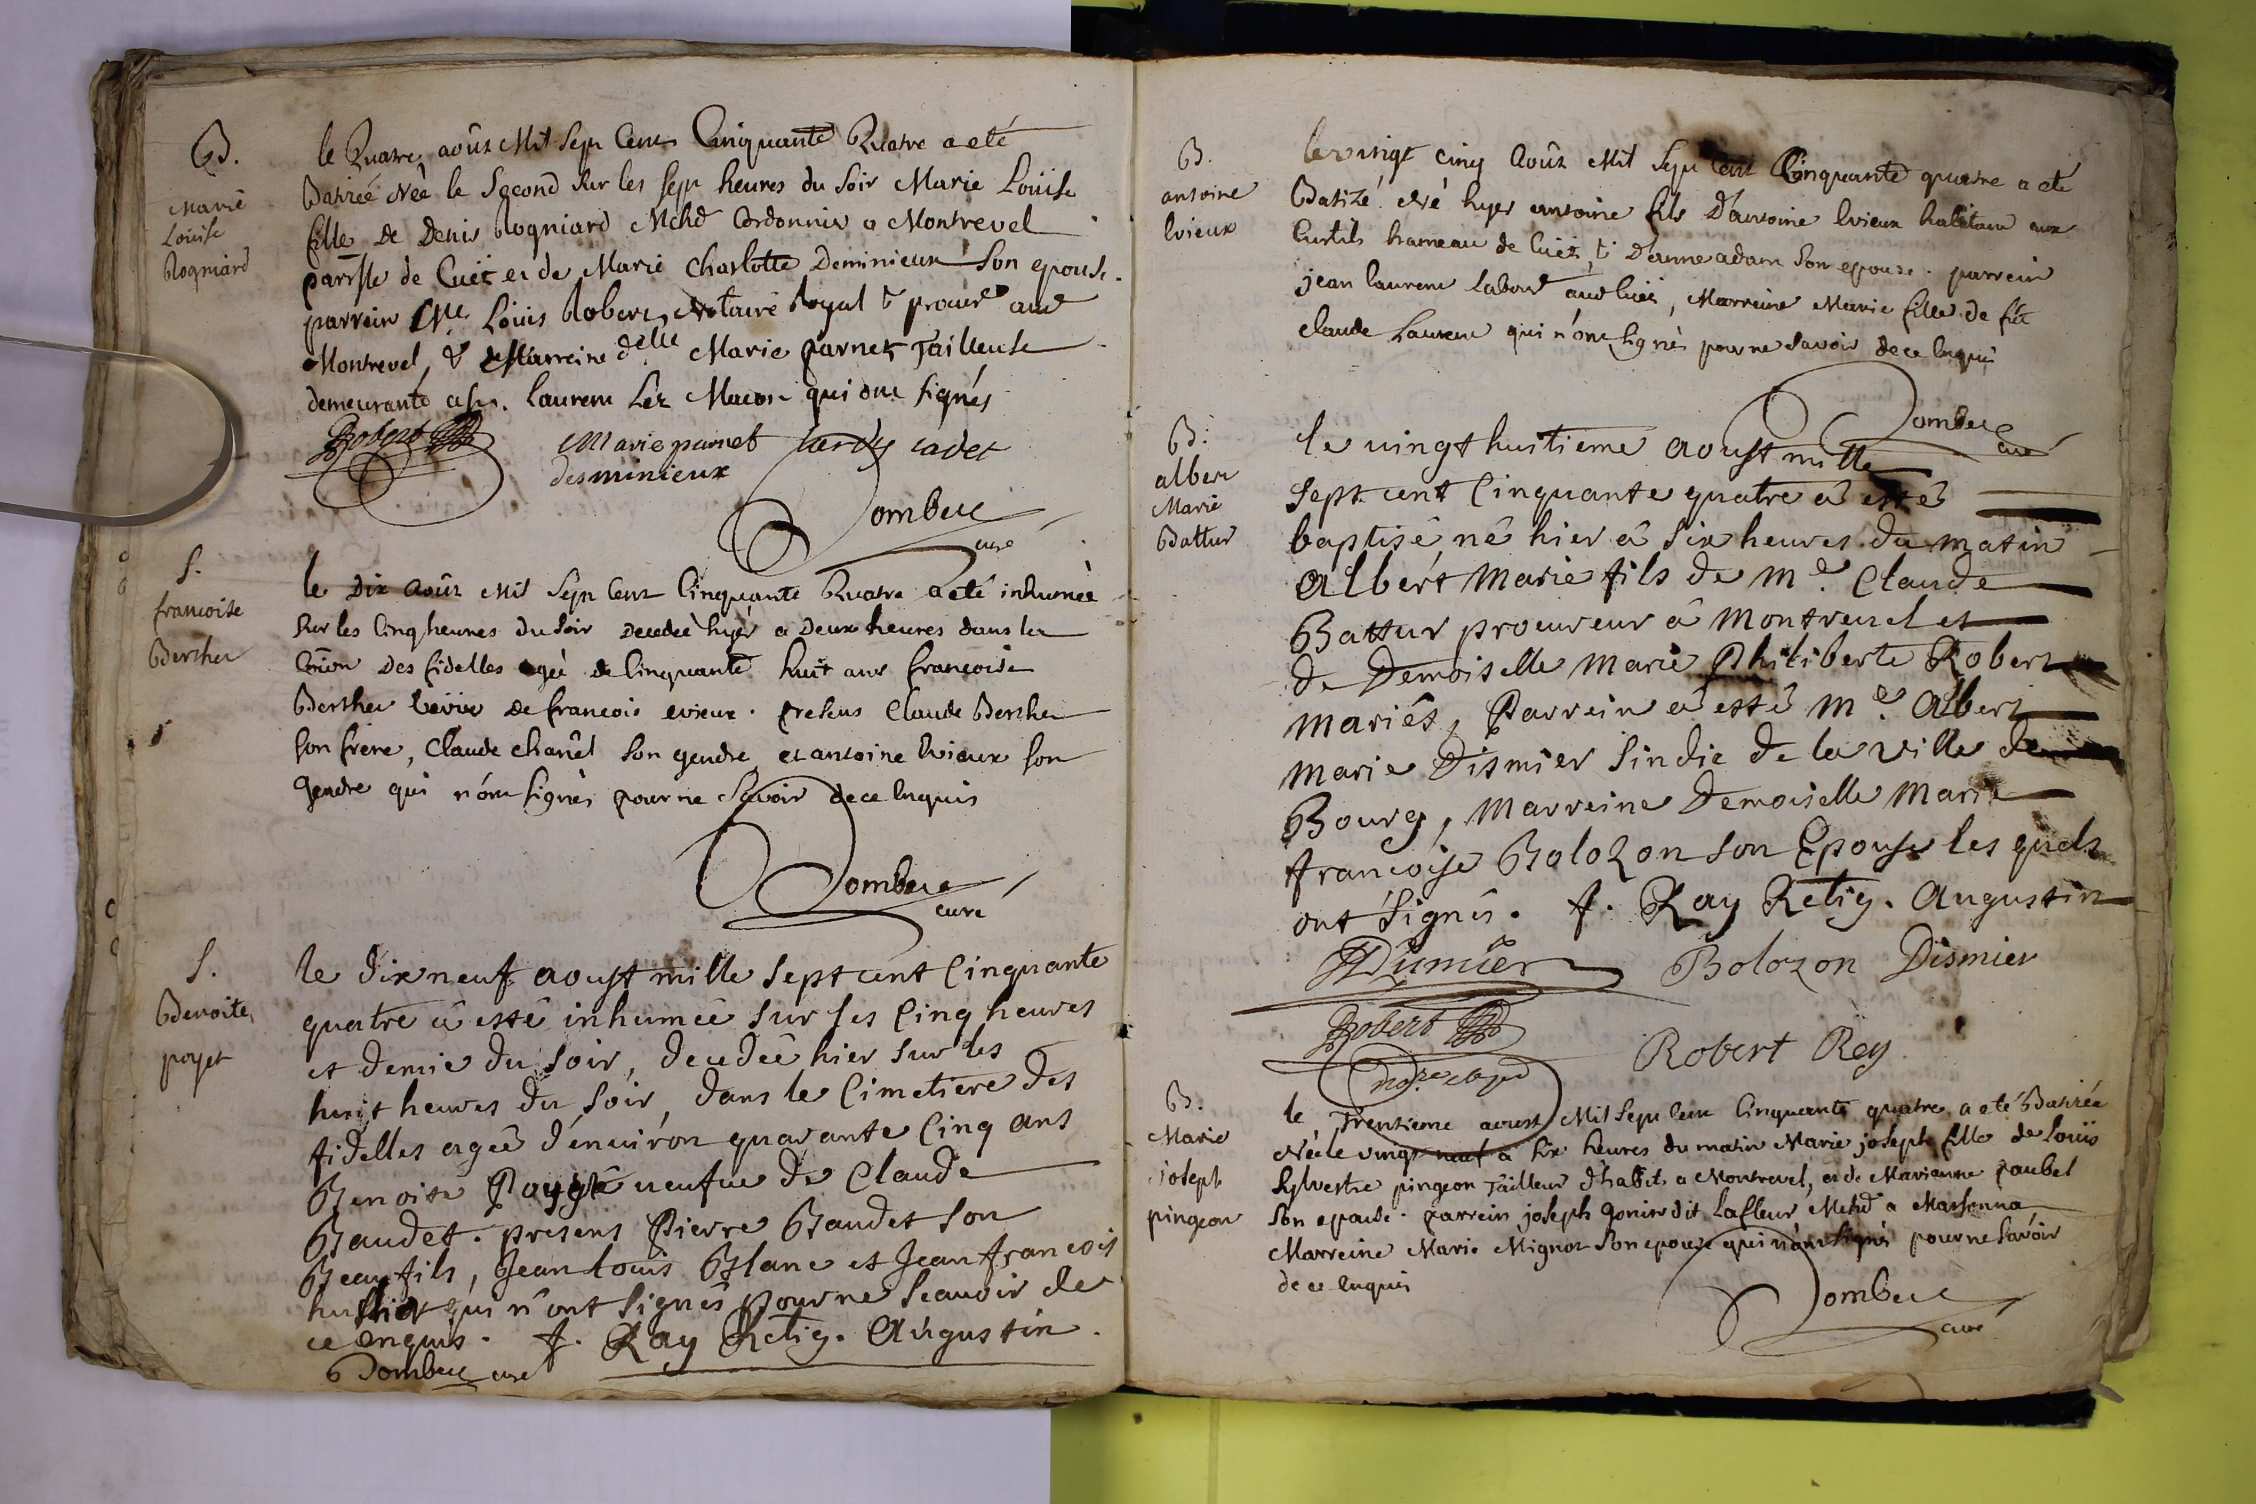 B.
Marie
Loüise
Rogniard
le Quatre aoûst Mil Sept Cent Cinquante Quatre a eté
Batizéé Néé le Second sur les sept heures du soir Marie Loüise
fille de Denis Rogniard Mchd Cordonnier a Montrevel
parrsse de Cuët et de Marie Charlotte Deminieux son epouse.
parrein Mre Loüis Robert, Notaire Royal & procur aud
Montrevel, & Marreine delle Marie parnet Tailleuse
demeurante a St. Laurent Lèz Macon qui ont signés
Robert
Marie parnet tardy cadet
desminieux
Dombeic
curé
S.
francoise
Berther
le Dix aoûst Mil Sept Cent Cinquante Quatre a eté inhumeè
sur les Cinq heures du soir decedeè hyer a Deux heures dans la
Cm̄ion des fidelles agéé de Cinquante huit ans francoise
Berther veüve de francois evieux. presens Claude Berther
son frere, Claude Charvêt son gendre et antoine Evieux son
gendre qui n'ont signés pour ne Savoir de ce Enquis
Dombeic
curé
S.
Benoite
poyet
le dix neuf aoust mille sept cent Cinquante
quatre â esté inhumeê sur les Cinq heures
et demie du soir, decedeê hier sur les
huit heures du soir, dans le Cimetiere des
fidelles ageê d'environ quarante Cinq ans
Benoite veufue de Claude
Baudet. presens Pierre Baudet son
Beaufils, Jean Louis Blanc et Jean francois
qui n'ont signés pour ne Scauoir de
ce enquis. f. Ray Relig. Augustin.
Dombeic curé
B.
antoine
Evieux
le vingt cinq Aoûst Mil Sept Cent Cinquante quatre a eté
Batizé Né hyer antoine fils D'antoine Evieux habitant aux
Curtils hameau de Cuët, & D'anne adam son epouse. parrein
jean laurent Labour aud Cuët, Marreine Marie fille de fut
claude Laurent qui n'ont signés pour ne savoir de ce Enquis
Dombeic
curé
B.
albert
Marie
Battur
le vingt huitieme aoust mille
sept cent Cinquante quatre â esté
baptisé, né hier â six heures du matin
Albert Marie fils de Me. Claude
Battur procureur â Montreuel et
de Demoiselle Marie Philiberte Robert
mariés, Parrein â esté Me. Albert
Marie Dismier Sindic de la ville de
Bourg, Marreine Demoiselle Marie
françoise Bolozon son Epouse les quels
ont signés. f. Ray Relig. Augustin
Dimier Bolozon Dismier
Robert
Robert Rey
B.
Marie
joseph
pingeon
le Trentieme aoust Mil Sept Cent Cinquante quatre a eté Batizéé
Néé le vingt neuf a six heures du matin Marie joseph fille de Loüis
Sylvestre pingeon Tailleur d'habit a Montrevel, et de Marianne paubel
son epouse. parrein joseph gonin dit Lafleur Mchd a Marsonna,
Marreine Marie Mignot son epouse qui n'ont signé pour ne savoir
de ce Enquis
Dombeic
curé